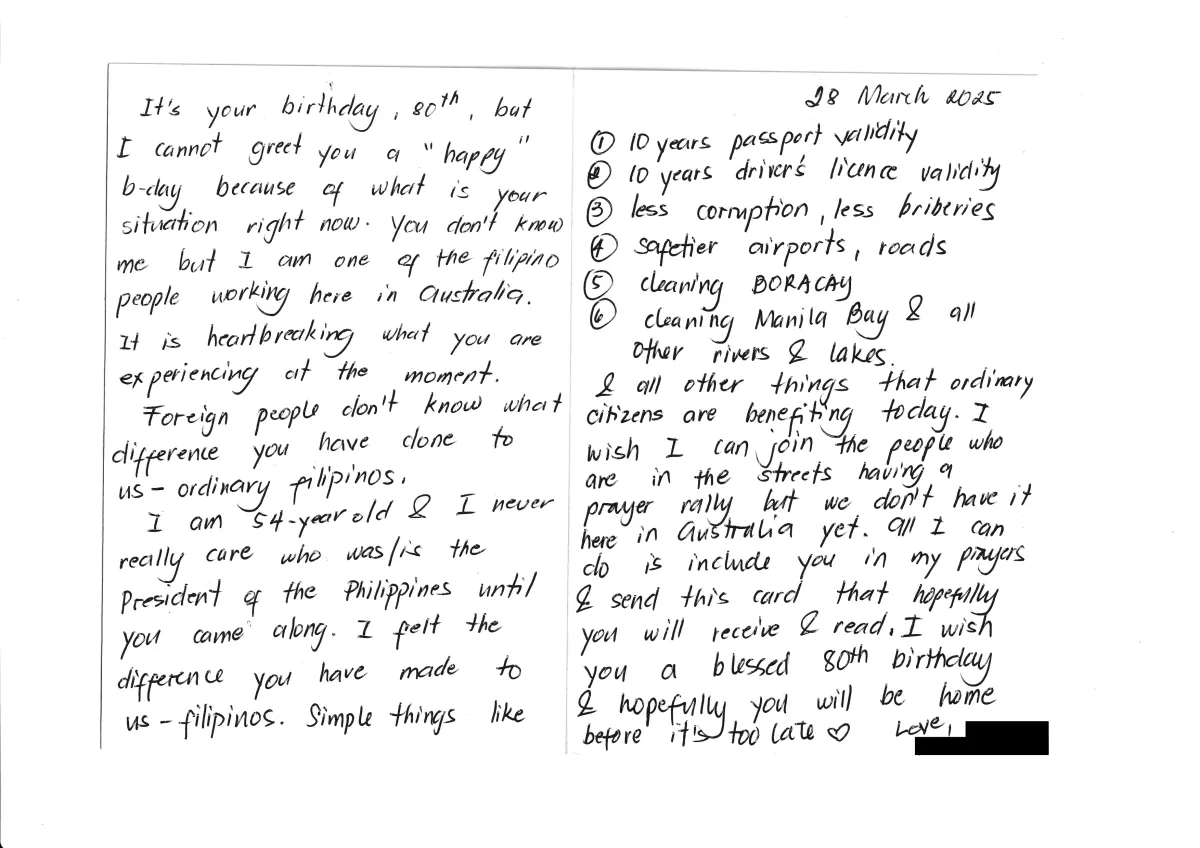 It's your birthday, 80th, but
I cannot greet you a "happy"
b-day because of what is your
situation right now. You don't know
me but I am one of the filipino
people working here in Australia.
It is heartbreaking what you are
experiencing at the moment.
Foreign people don't know what
difference you have done to
us - ordinary filipinos.
I am 54-year old & I never
really care who was/is the
President of the Philippines until
you came along. I felt the
difference you have made to
us - filipinos. Simple things like
28 March 2025
① 10 years passport validity
② 10 years driver's licence validity
③ less corruption, less briberies
④ safetier airports, roads
⑤ cleaning BORACAY
⑥ cleaning Manila Bay & all
other rivers & lakes.
& all other things that ordinary
citizens are benefiting today. I
wish I can join the people who
are in the streets having a
prayer rally but we don't have it
here in Australia yet. All I can
do is include you in my prayers
& send this card that hopefully
you will receive & read. I wish
you a blessed 80th birthday
& hopefully you will be home
before it's too late ♡ Love,